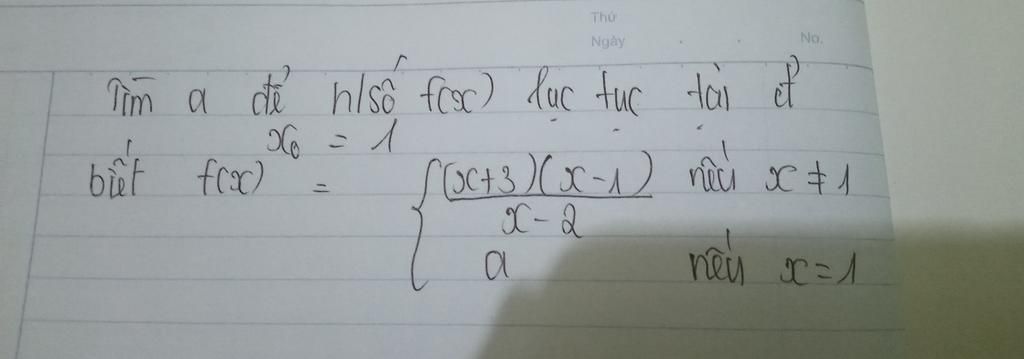 Thứ
Ngày . . No.
Tìm a để h/số f(x) lục tục tại đ
x₀ = 1
biết f(x) = { (x+3)(x-1) nếu x ≠ 1
x-2
a nếu x=1